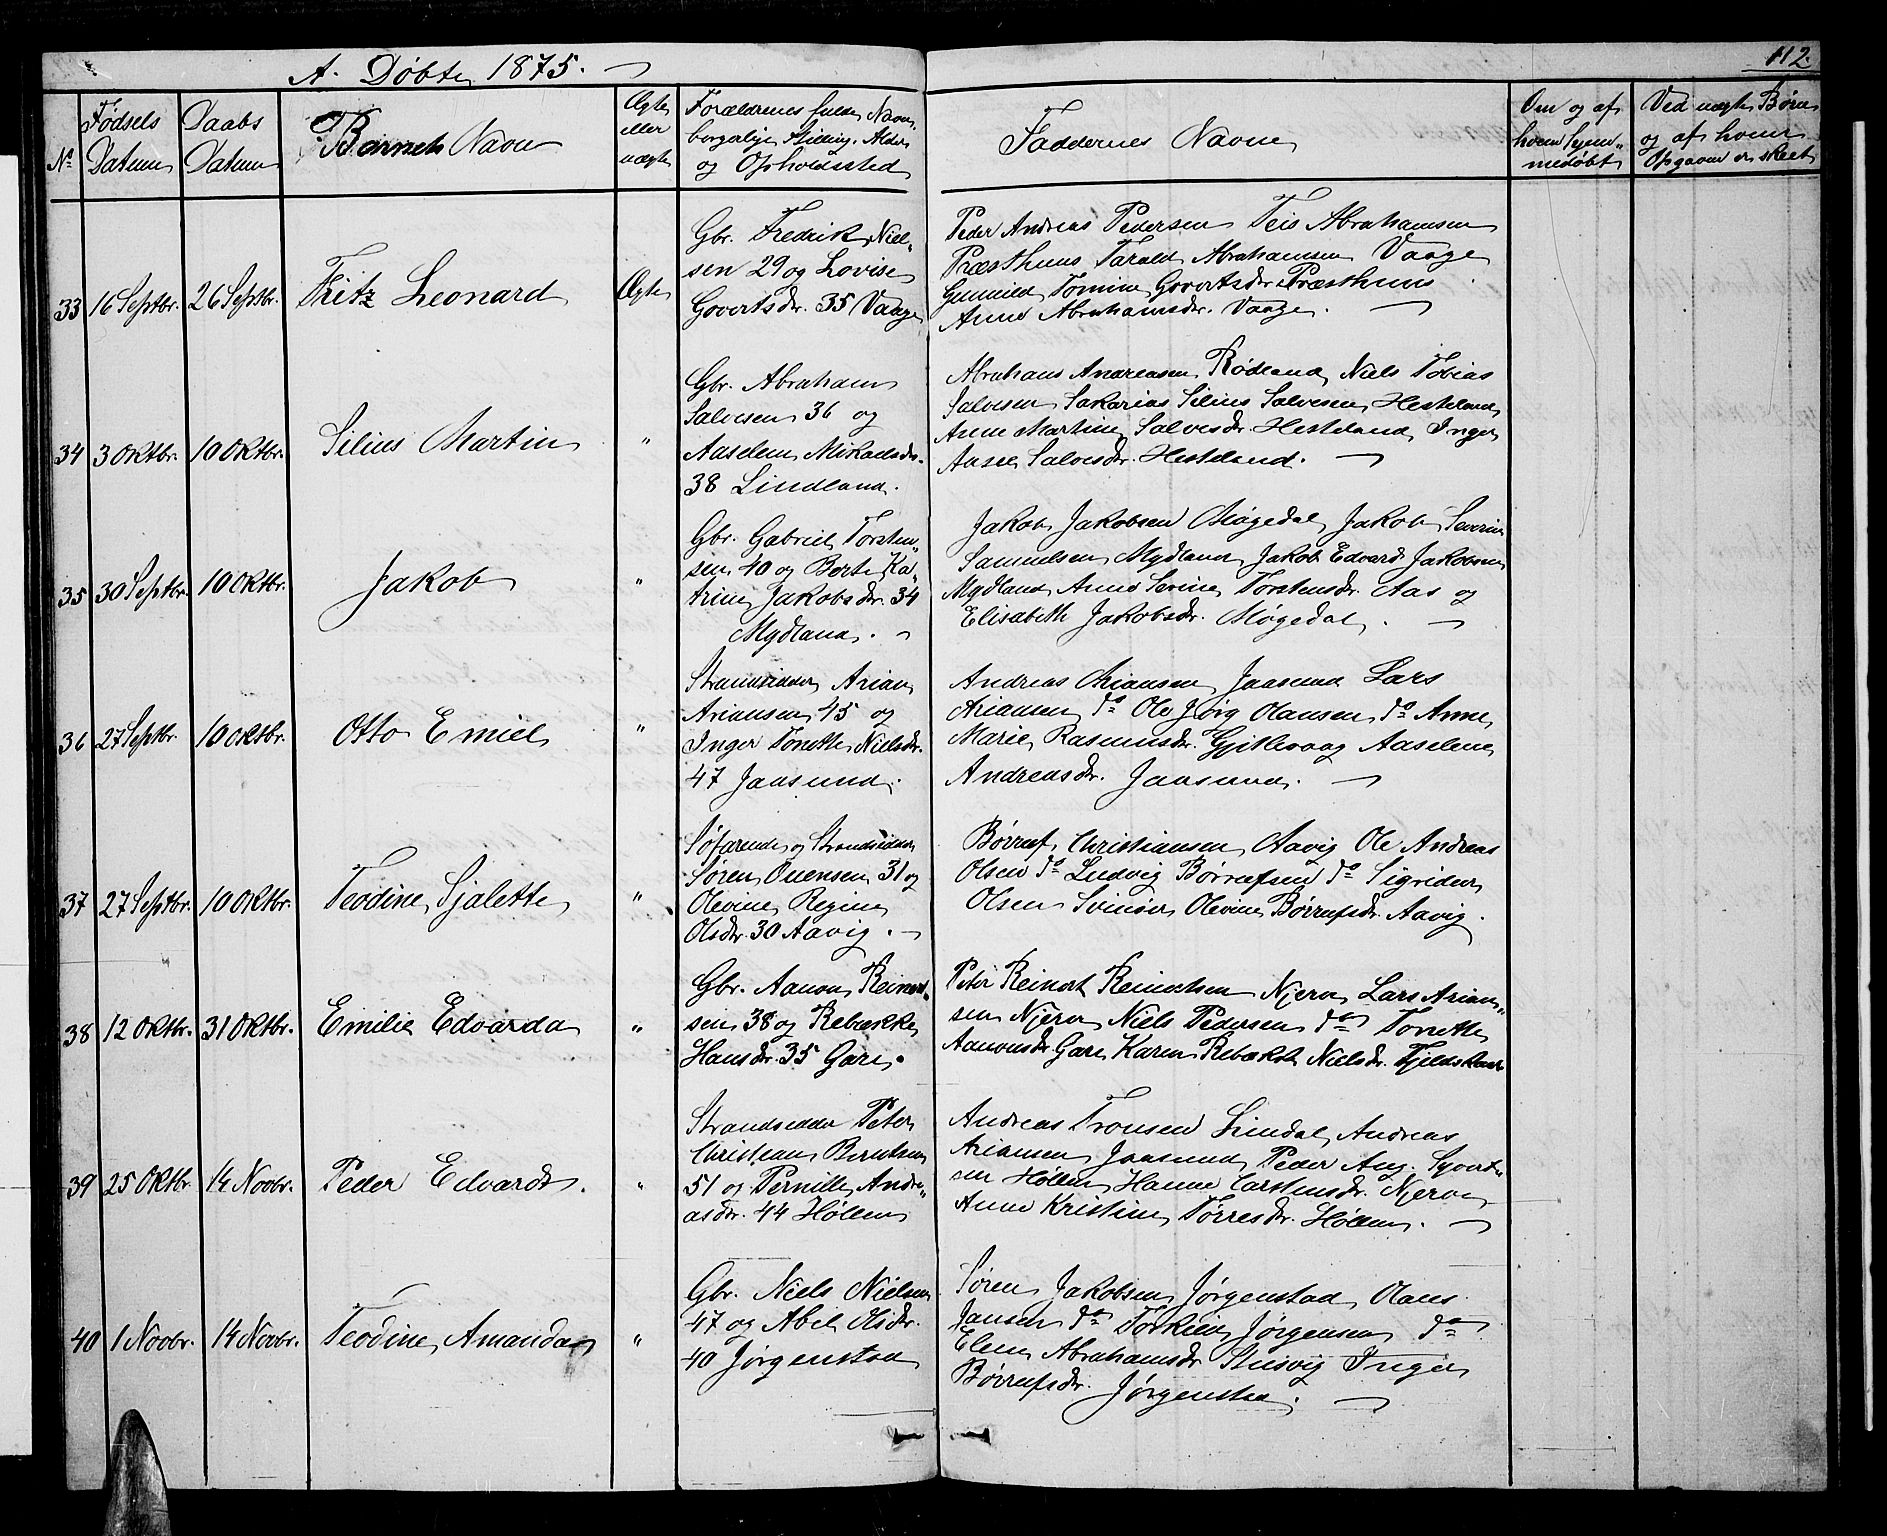 A. Døbte 1875.
112.
No
Fødsels Datum
Daabs Datum
Barnets Navn
Ægte eller uægte
Forældrenes fulde Navn, borgerlige Stilling, Alder og Opholdssted
Faddernes Navne
Om og af hvem hjemmedøbt
Ved uægte Børn og af hvem Opgaven er skeet
33 16 Septbr. 26 Septbr. Fritz Leonard Ægte
Gbr. Fredrik Niel-
sen 29 og Lovise
Govertsdr. 35 Vaage
Peder Andreas Pedersen Teis Abrahamsen
Præsthuus Tarald Abrahamsen Vaage
Gunnild Tomine Govertsdr. Præsthuus
Anne Abrahamsdr. Vaage.
34 3 Oktbr. 10 Oktbr. Silius Martin "
Gbr. Abraham
Salvesen 36 og
Aaselene Mikalsdr.
38 Lindland.
Abrahans Andreasen Rødland, Niels Tobias
Salvesen Sakarias Silius Salvesen Hesteland,
Anne Martine Salvesdr. Hesteland, Inger
Aase Salvesdr. Hesteland.
35 30 Septbr. 10 Oktbr. Jakob "
Gbr. Gabriel Torsten-
sen 40 og Berte Ka-
trine Jakobsdr. 34
Mydland.
Jakob Jakobsen Møgedal, Jakob Severin
Samuelsen Mydland Jakob Edvard Jakobsen
Mydland Anne Serine Torstensdr. Aas og
Elisabeth Jakobsdr. Møgedal.
36 27 Septbr. 10 Oktbr. Otto Emiel "
Strandsidder Arian
Ariansen 45 og
Inger Tonette Nielsdr.
47 Jaasund.
Andreas Ariansen Jaasund Lars
Ariansen do Ole Jørg Olausen do Anne
Marie Rasmusdr. Gjitlevaag Aaselene
Andreasdr. Jaasund.
37 27 Septbr. 10 Oktbr. Teodine Sjalotte "
Søfarende og Strandsidder
Søren Ouensen 31 og
Olevine Regine
Olsdr. 30 Aavig.
Børruf Christiansen Aavig Ole Andreas
Olsen do Ludvig Børrufsen do Sigridur
Olsen Svinøer Olevine Børrufsdr. Aavig.
38 12 Oktbr. 31 Oktbr. Emilie Edvarda "
Gbr. Aanon Reinert-
sen 38 og Rebække
Hansdr. 35 Gare.
Peter Reinert Reinertsen Njerve, Lars Arian-
sen Njerve Niels Pedersen do Tonette
Aanonsdr. Gare Karen Rebække Nielsdr. Fjeldskaar
39 25 Oktbr. 14 Novbr. Peder Edvard. "
Strandsidder Peter
Christian Berntsen
51 og Pernille Andre-
asdr. 44 Høllen
Andreas Tronsen Lindal, Andreas
Ariansen Jaasund Peder Aug. Syvert-
sen Høllen Hanne Carstensdr. Njerve
Anne Kristine Tørresdr. Høllen.
40 1 Novbr. 14 Novbr. Teodine Amanda "
Gbr. Niels Nielsen
47 og Abel Olsdr.
40 Jørgenstad
Søren Jakobsen Jørgenstad Olaus
Jansen do Torkild Jørgensen do
Elene Abrahamsdr. Stusvig Inger
Børrufsdr. Jørgenstad.